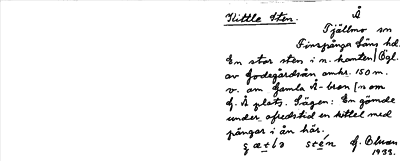 Kittle Sten. Å
Tjällmo sn
Finspånga läns hd.
En stor sten i n. kanten Ögl.
av Godegårdsån omkr. 150 m.
v. om Gamla Å-bron [n om
g. Å plats. Sägen: En gömde
under ofredstid en kittel med
pängar i ån här.
sten
1933.